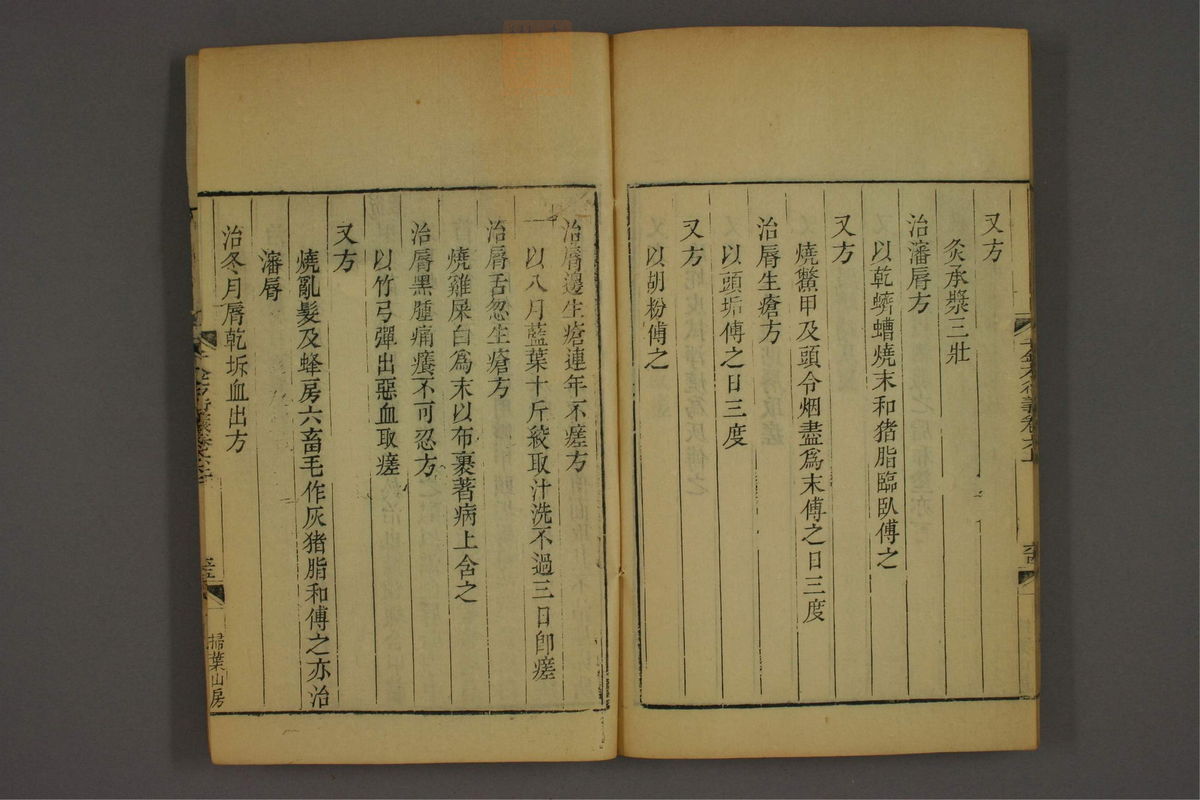 又方
灸承漿三壯
治瀋脣方
以乾蠐螬燒末和猪脂臨臥傅之
又方
燒鱉甲及頭令烟盡爲末傅之日三度
治脣生瘡方
以頭垢傅之日三度
又方
以胡粉傅之
治脣邊生瘡連年不瘥方
以八月藍葉十斤絞取汁洗不過三日卽瘥
治脣舌忽生瘡方
燒雞屎白爲末以布裹著病上含之
治脣黑腫痛癢不可忍方
以竹弓彈出惡血取瘥
又方
燒亂髮及蜂房六畜毛作灰猪脂和傅之亦治
瀋脣
治冬月脣乾坼血出方
掃葉山房